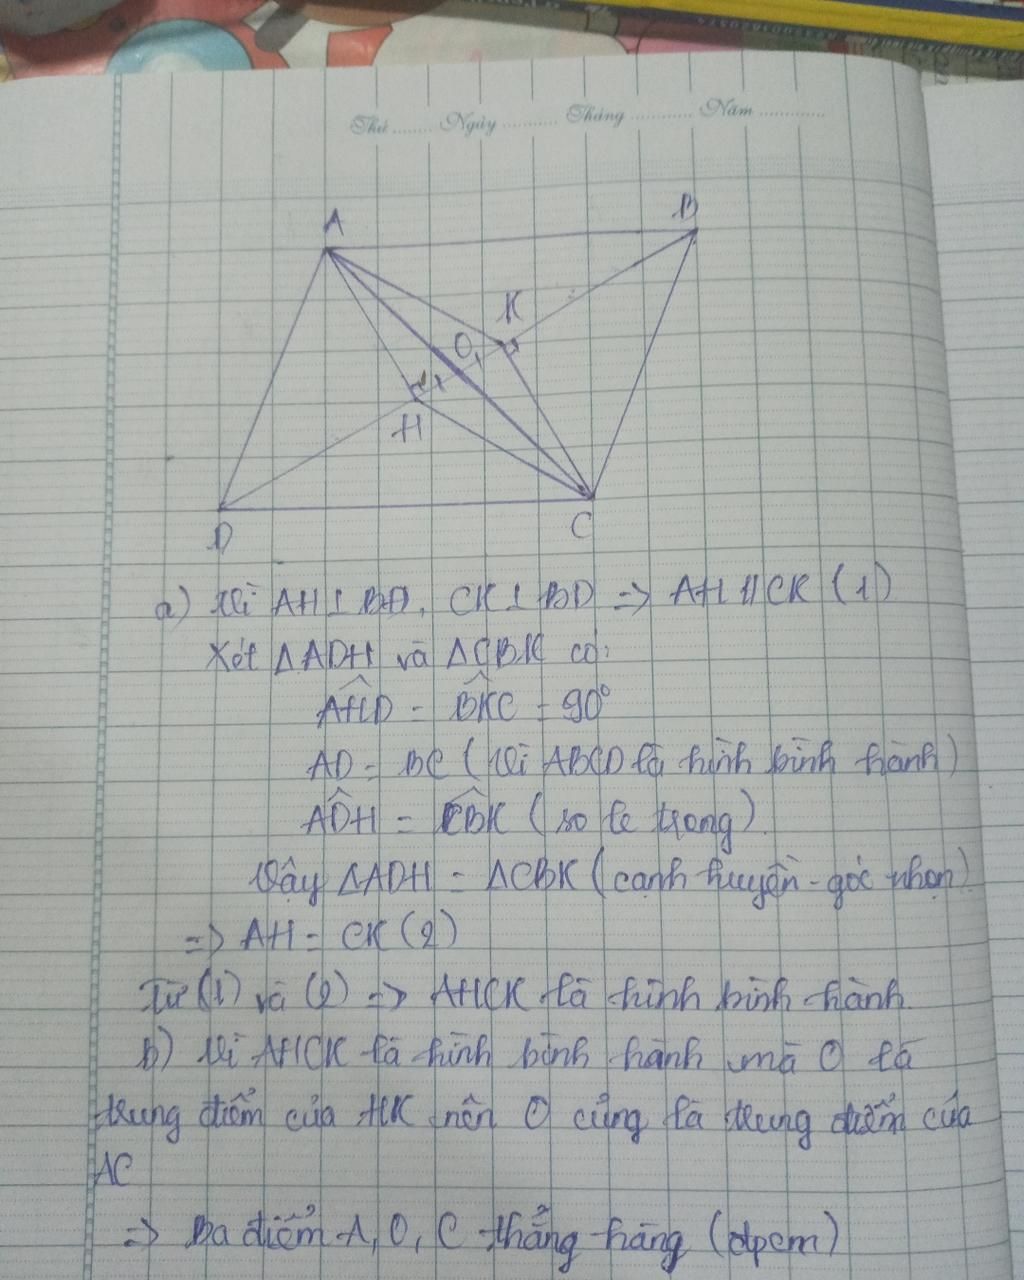 Thứ ........ Ngày ............ Tháng ............ Năm ..............
A
B
K
O
H
D
C
a) Vì AH ⊥ BD, CK ⊥ BD => AH // CK (1)
Xét ΔADH và ΔCBK có:
AHD = BKC = 90°
AD = BC (Vì ABCD là hình bình hành)
ADH = CBK (so le trong)
Vậy ΔADH = ΔCBK (cạnh huyền - góc nhọn)
=> AH = CK (2)
Từ (1) và (2) => AHCK là hình bình hành.
b) Vì AHCK là hình bình hành mà O là
trung điểm của HK nên O cũng là trung điểm của
AC
=> Ba điểm A, O, C thẳng hàng (đpcm)